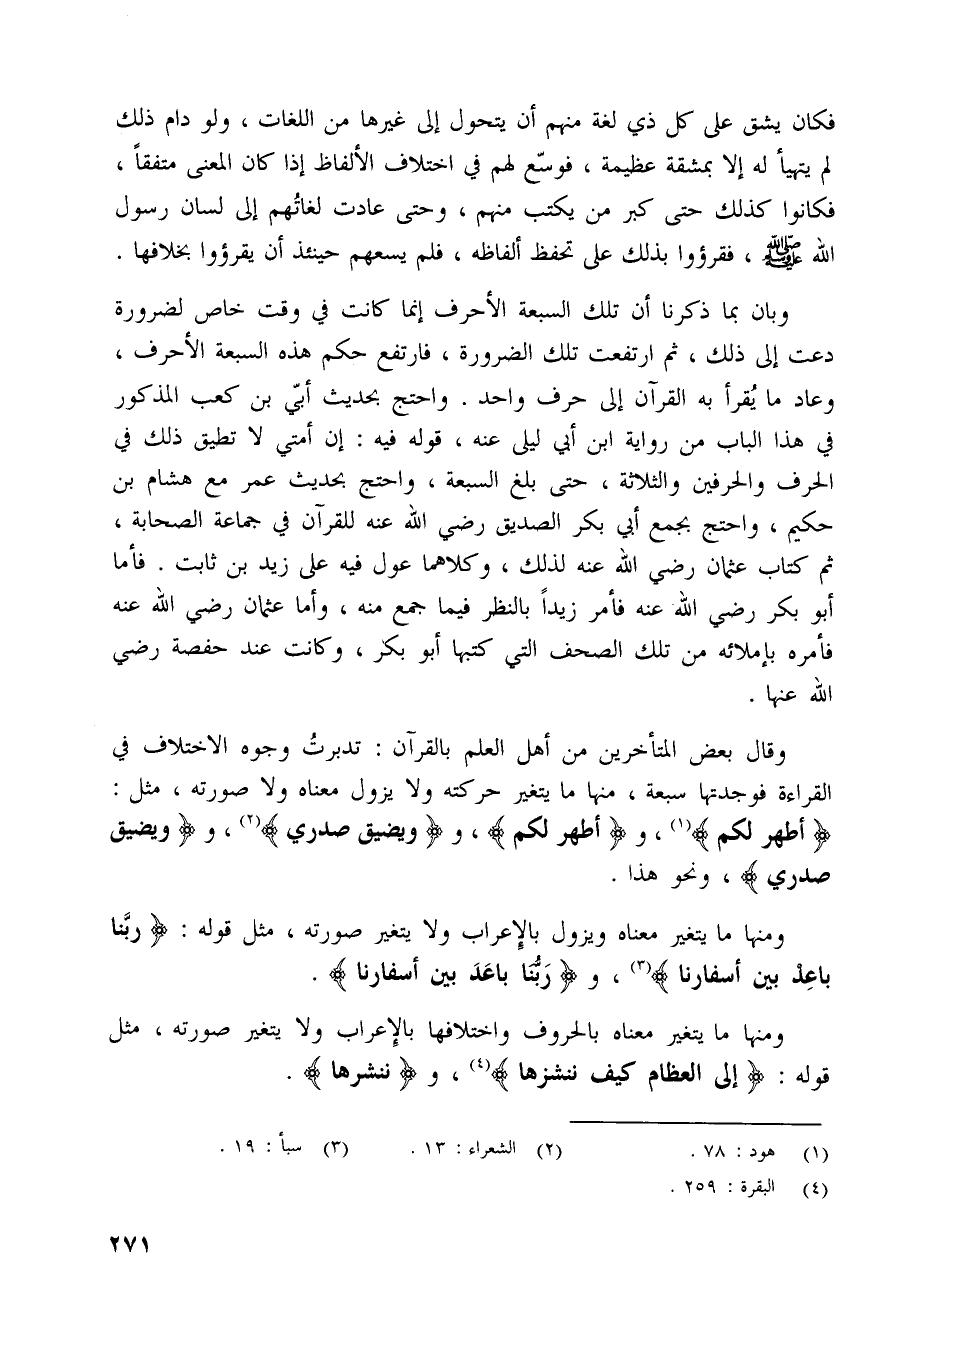 فكان يشق على كل ذي لغة منهم أن يتحول إلى غيرها من اللغات ، ولو دام ذلك
لم يتهيأ له إلا بمشقة عظيمة ، فوسّع لهم في اختلاف الألفاظ إذا كان المعنى متفقاً ،
فكانوا كذلك حتى كبر من يكتب منهم ، وحتى عادت لغاتُهم إلى لسان رسول
الله ﷺ ، فقرؤوا بذلك على تحفظ ألفاظه ، فلم يسعهم حينئذ أن يقرؤوا بخلافها .
وبان بما ذكرنا أن تلك السبعة الأحرف إنما كانت في وقت خاص لضرورة
دعت إلى ذلك ، ثم ارتفعت تلك الضرورة ، فارتفع حكم هذه السبعة الأحرف ،
وعاد ما يُقرأ به القرآن إلى حرف واحد . واحتج بحديث أبيّ بن كعب المذكور
في هذا الباب من رواية ابن أبي ليلى عنه ، قوله فيه : إن أمتي لا تطيق ذلك في
الحرف والحرفين والثلاثة ، حتى بلغ السبعة ، واحتج بحديث عمر مع هشام بن
حكيم ، واحتج بجمع أبي بكر الصديق رضي الله عنه للقرآن في جماعة الصحابة ،
ثم كتاب عثمان رضي الله عنه لذلك ، وكلاهما عول فيه على زيد بن ثابت . فأما
أبو بكر رضي الله عنه فأمر زيداً بالنظر فيما جمع منه ، وأما عثمان رضي الله عنه
فأمره بإملائه من تلك الصحف التي كتبها أبو بكر ، وكانت عند حفصة رضي
الله عنها .
وقال بعض المتأخرين من أهل العلم بالقرآن : تدبرتُ وجوه الاختلاف في
القراءة فوجدتها سبعة ، منها ما يتغير حركته ولا يزول معناه ولا صورته ، مثل :
﴿ أطهر لكم ﴾(١) ، و ﴿ أطهر لكم ﴾ ، و ﴿ ويضيق صدري ﴾(٢) ، و ﴿ ويضيق
صدري ﴾ ، ونحو هذا .
ومنها ما يتغير معناه ويزول بالإعراب ولا يتغير صورته ، مثل قوله : ﴿ ربَّنا
باعِدْ بين أسفارنا ﴾(٣) ، و ﴿ رَبُّنَا باعَدَ بين أسفارنا ﴾ .
ومنها ما يتغير معناه بالحروف واختلافها بالإعراب ولا يتغير صورته ، مثل
قوله : ﴿ إلى العظام كيف ننشزها ﴾(٤) ، و ﴿ ننشرها ﴾ .
(١) هود : ٧٨ . (٢) الشعراء : ١٣ . (٣) سبأ : ١٩ .
(٤) البقرة : ٢٥٩ .
٢٧١